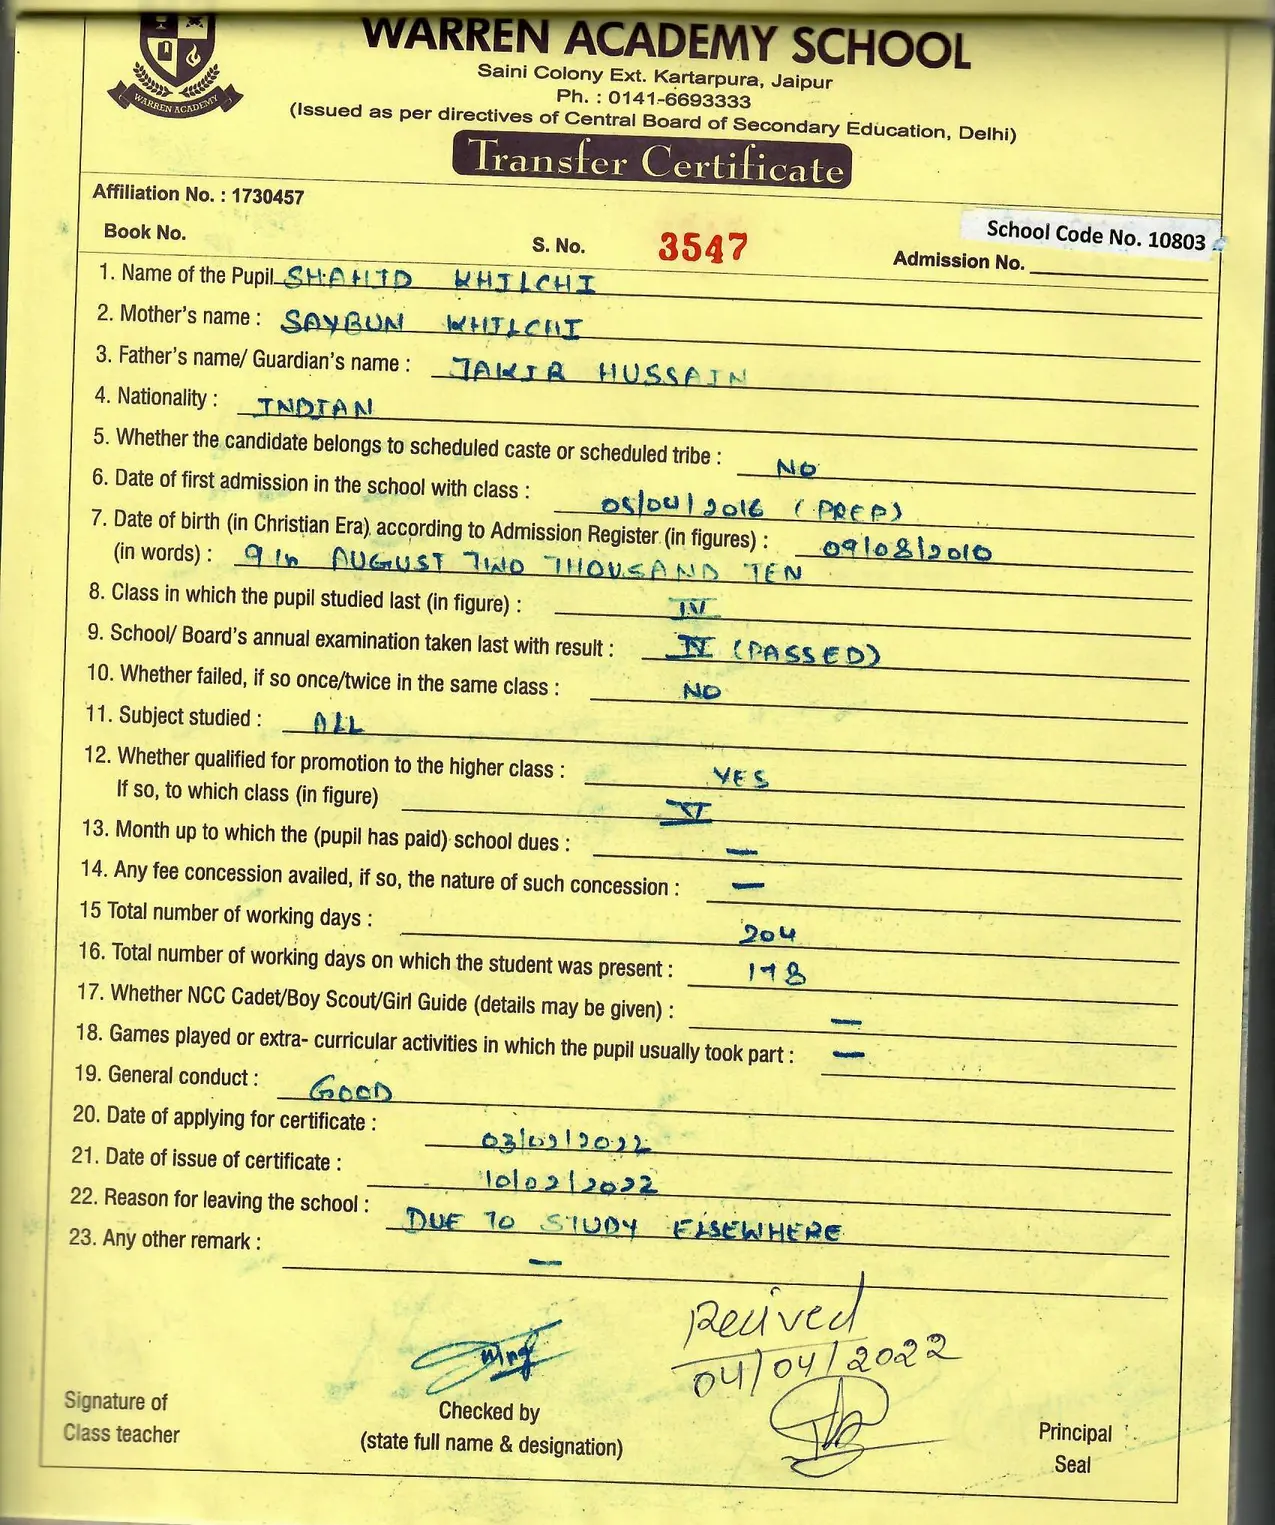 WARREN ACADEMY
WARREN ACADEMY SCHOOL
Saini Colony Ext. Kartarpura, Jaipur
Ph. : 0141-6693333
(Issued as per directives of Central Board of Secondary Education, Delhi)
Transfer Certificate
Affiliation No. : 1730457
School Code No. 10803
Book No. S. No. 3547 Admission No.
1. Name of the Pupil SHAHID KHILCHI
2. Mother's name : SAYBUN KHILCHI
3. Father's name/ Guardian's name : JAKIR HUSSAIN
4. Nationality : INDIAN
5. Whether the candidate belongs to scheduled caste or scheduled tribe : NO
6. Date of first admission in the school with class : 05/04/2016 (PREP)
7. Date of birth (in Christian Era) according to Admission Register (in figures) : 09/08/2010
(in words) : 9th AUGUST TWO THOUSAND TEN
8. Class in which the pupil studied last (in figure) : IV
9. School/ Board's annual examination taken last with result : IV (PASSED)
10. Whether failed, if so once/twice in the same class : NO
11. Subject studied : ALL
12. Whether qualified for promotion to the higher class : YES
If so, to which class (in figure)
13. Month up to which the (pupil has paid) school dues : –
14. Any fee concession availed, if so, the nature of such concession : –
15 Total number of working days : 204
16. Total number of working days on which the student was present : 178
17. Whether NCC Cadet/Boy Scout/Girl Guide (details may be given) : –
18. Games played or extra- curricular activities in which the pupil usually took part : –
19. General conduct : GOOD
20. Date of applying for certificate : 03/02/2022
21. Date of issue of certificate : 10/02/2022
22. Reason for leaving the school : DUE TO STUDY ELSEWHERE
23. Any other remark : –
Recived
04/04/2022
Signature of
Class teacher
Checked by
(state full name & designation)
Principal
Seal